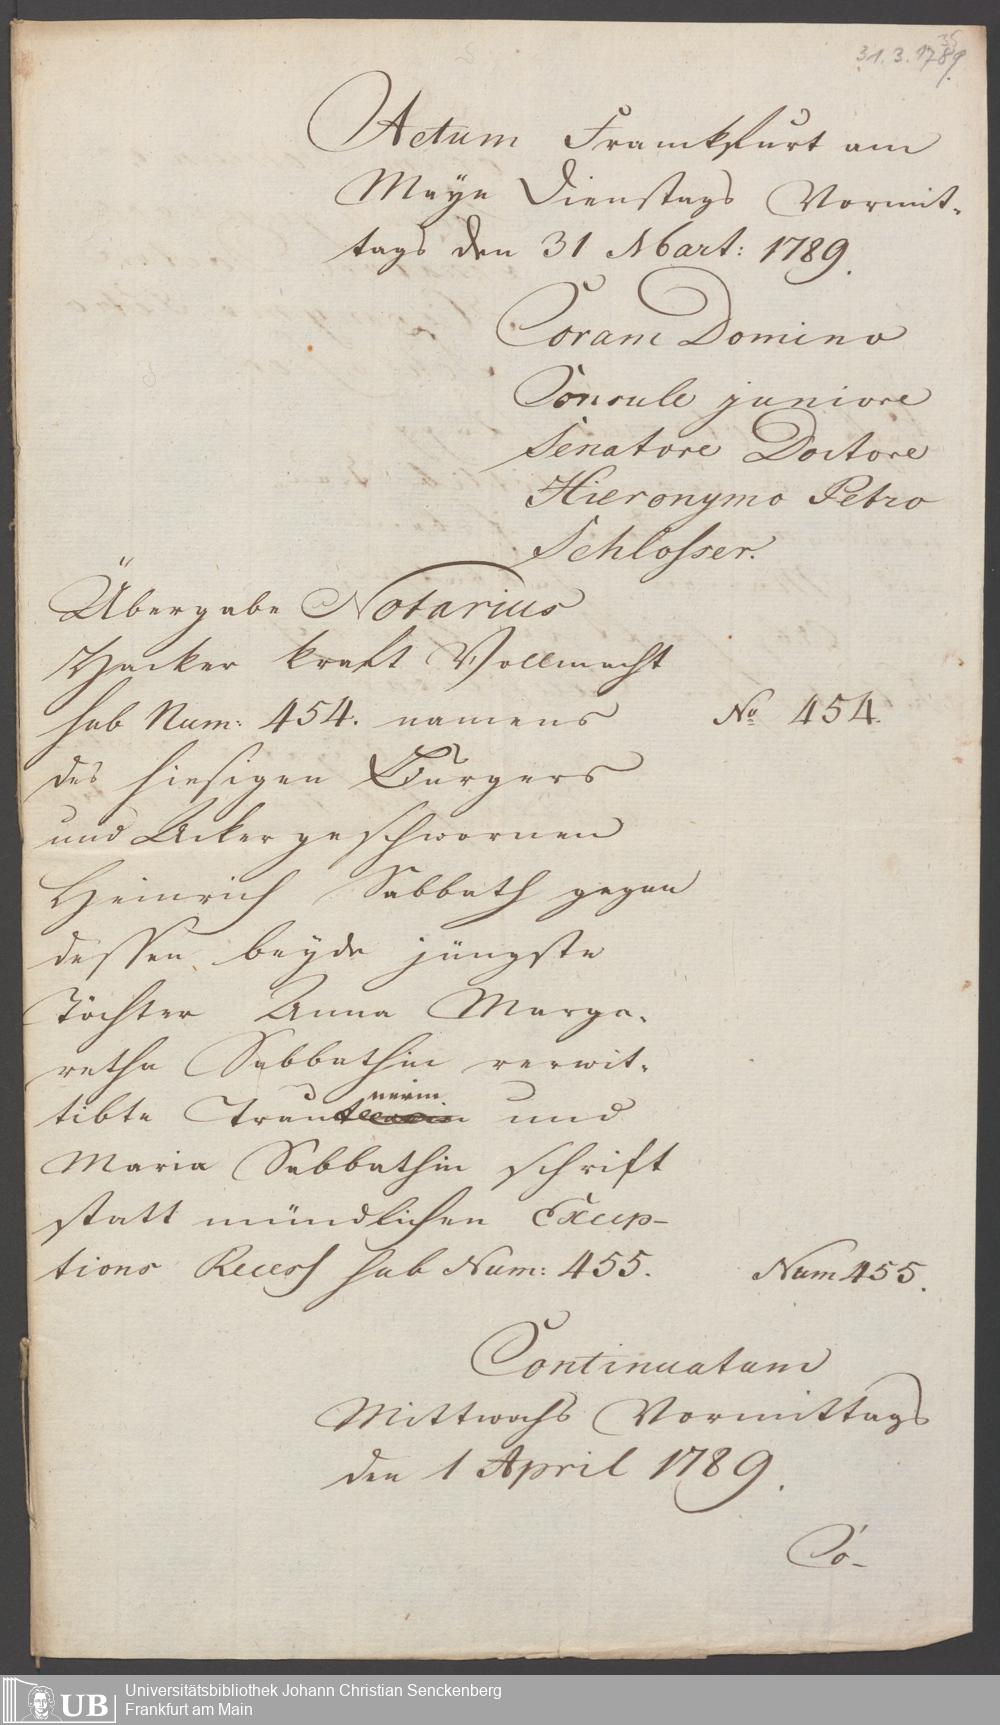 31. 3. 1789.
35
Actum Franckfurt am
Mayn Dienstags Vormit-
tags den 31 Mart: 1789.
Coram Domino
Consule juniore
Senatore Doctore
Hieronymo Petro
Schlosser.
Übergabe Notarius
Hacker kraft Vollmacht
sub Num: 454. namens
No 454.
des hiesigen Burgers
und Ackergeschwornen
Heinrich Sabbath gegen
dessen beyde jüngste
Töchter Anna Marga-
retha Sabbathin verwit-
nerin
tibte Traut und
Maria Sabbathin schrift
statt mündlichen Excep-
tions Recess sub Num: 455.
Num 455.
Continuatum
Mittwochs Vormittags
den 1 April 1789.
Co-
UB
Universitätsbibliothek Johann Christian Senckenberg
Frankfurt am Main